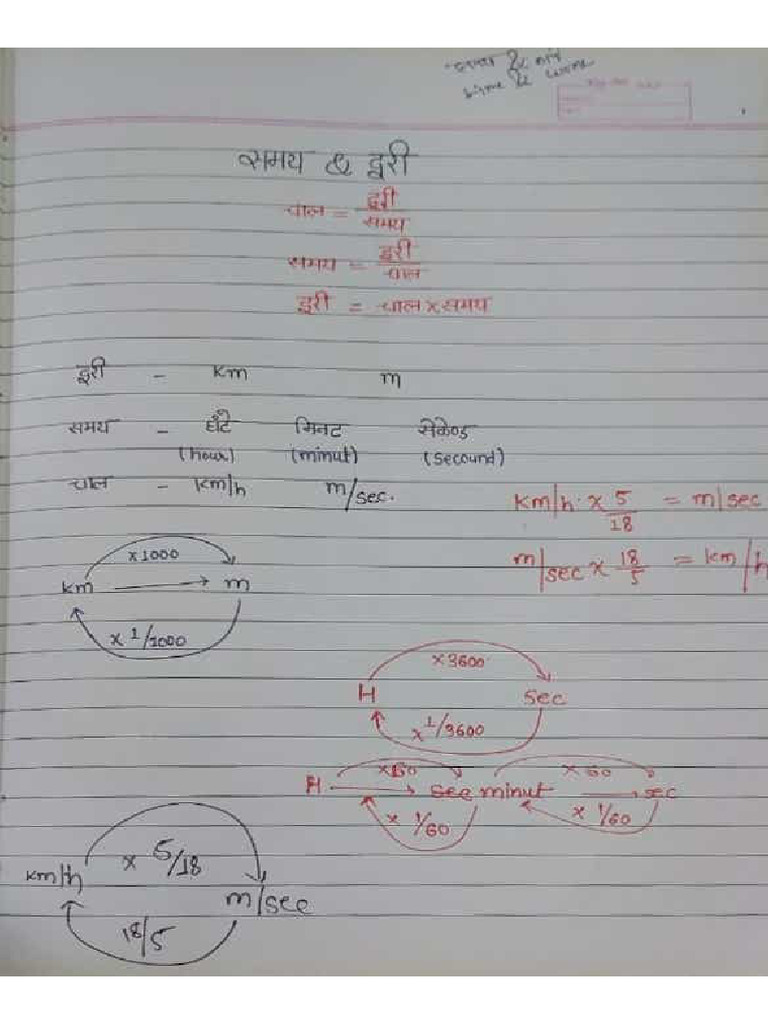 समय & दूरी
चाल = दूरी/समय
समय = दूरी/चाल
दूरी = चाल x समय
दूरी - Km m
समय - घंटे मिनट सेकेण्ड
(hour) (minut) (secound)
चाल - Km/h m/sec.
Km/h x 5/18 = m/sec
m/sec x 18/5 = km/h
x1000
km m
x 1/1000
x3600
H sec
x 1/3600
x60 x 60
H see minut sec
x 1/60 x 1/60
x 5/18
km/h
m/sec
18/5